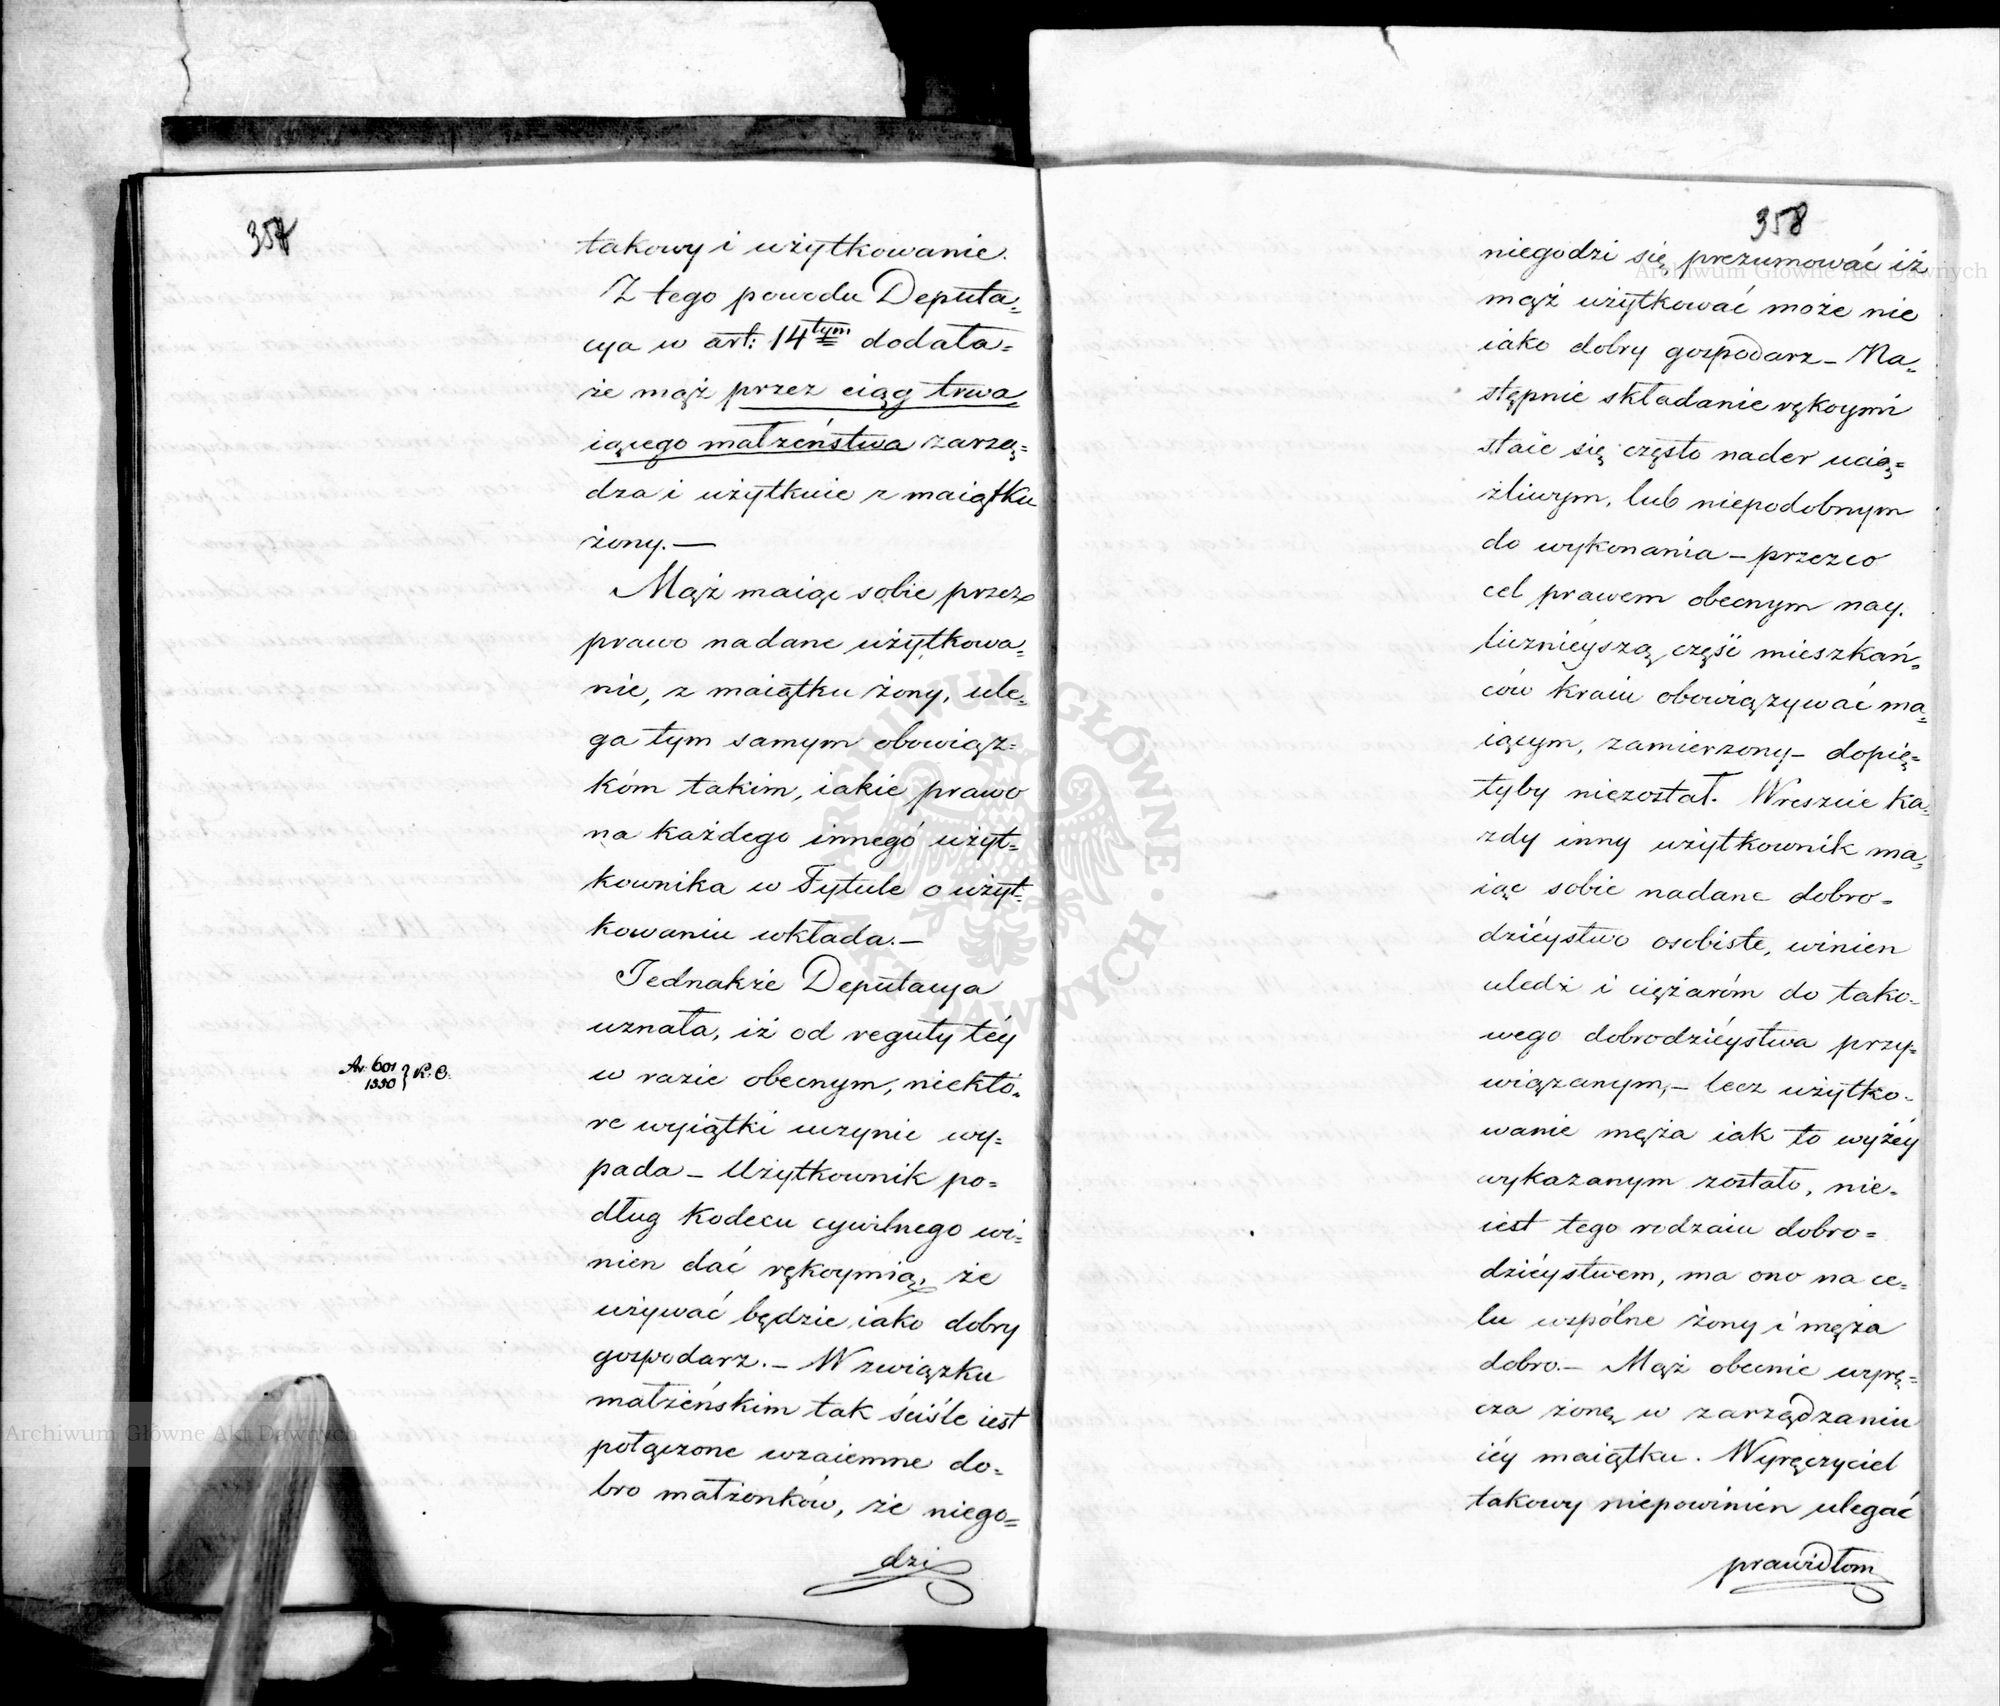 357
takowy i użytkowanie.
Z tego powodu Deputa=
cya w art: 14tym dodała=
że mąż przez ciąg trwa=
iącego małżeństwa zarzą=
dza i użytkuie z maiątku
żony.—
Mąż maiąc sobie przez
prawo nadane użytkowa=
nie, z maiątku żony, ule=
ga tym samym obowiąz=
kóm takim, iakie prawo
na każdego innego użyt=
kownika w Tytule o użyt=
kowaniu wkłada.—
Jednakże Deputacya
uznała, iż od reguły téy
w razie obecnym, niektó=
re wyiątki uczynić wy=
pada — Użytkownik po=
dług Kodexu cywilnego wi=
nien dać rękoymią, że
używać będzie iako dobry
gospodarz.— W związku
małżeńskim tak ściśle iest
połączone wzaiemne do=
bro małżonków, że niego=
dzi
Ar. 601
1550 } K: C:
358
niegodzi się prezumować iż
mąż użytkować może nie
iako dobry gospodarz — Na=
stępnie składanie rękoymi
staie się często nader ucią=
żliwym, lub niepodobnym
do wykonania — przezco
cel prawem obecnym nay=
licznieyszą część mieszkań=
ców kraiu obowiązywać ma=
iącym, zamierzony — dopię=
tyby niezostał. Wreszcie ka=
żdy inny użytkownik ma=
iąc sobie nadane dobro=
dziéystwo osobiste, winien
uledz i ciężaróm do tako=
wego dobrodziéystwa przy=
wiązanym,— lecz użytko=
wanie męża iak to wyżéy
wykazanym zostało, nie=
iest tego rodzaiu dobro=
dziéystwem, ma ono na ce=
lu wspólne żony i męża
dobro.— Mąż obecnie wyrę=
cza żonę w zarządzaniu
iéy maiątku. Wyręczyciel
takowy niepowinien ulegać
prawidłom
Archiwum Główne Akt Dawnych
Archiwum Główne Akt Dawnych
ARCHIWUM GŁÓWNE AKT DAWNYCH